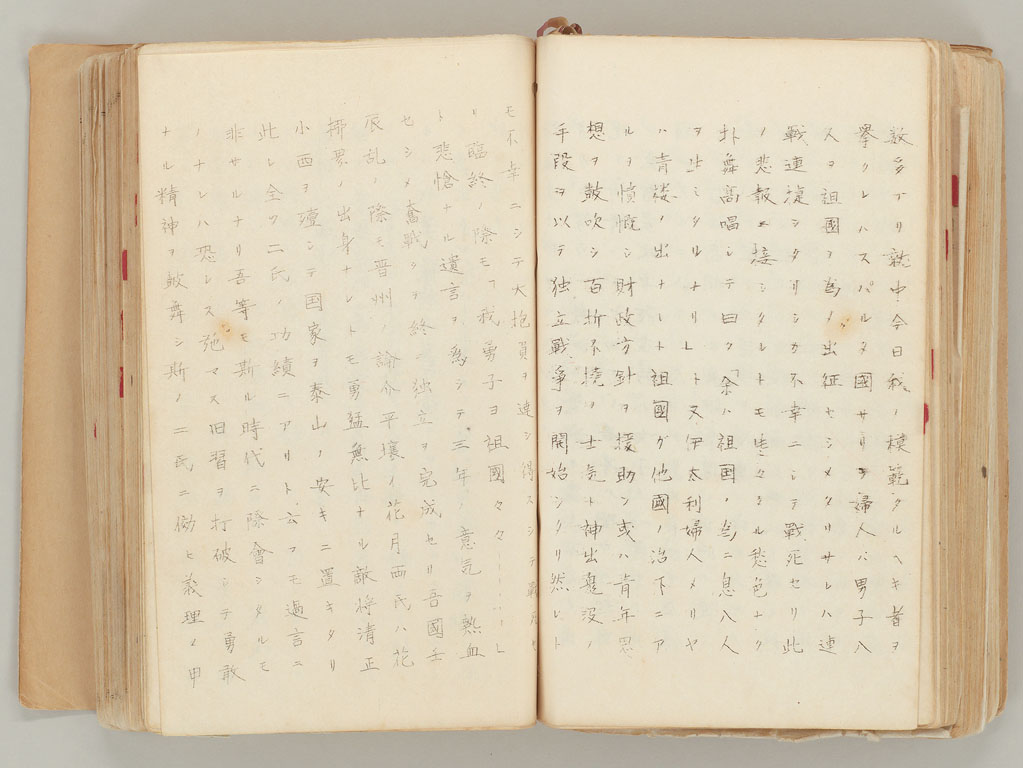 数多アリ就中今日我ノ模範タルヘキ者ヲ
挙クレハスパルタ國サリー婦人ハ男子八
人ヲ祖國ノ為メ出征セシメタリサレハ連
戦連捷シタリシカ不幸ニシテ戦死セリ此
ノ悲報ニ接シタレトモ愁色ナク
舞高唱シテ曰ク「余ハ祖国ノ為ニ息八人
ヲ生ミタルナリ」ト又伊太利婦人メリヤ
ハ青楼ノ出ナレト祖國ガ他國ノ治下ニア
ルヲ憤慨シ財政方針ヲ援助シ或ハ青年思
想ヲ鼓吹シ百折不撓ノ士気ト神出鬼没ノ
手段ヲ以テ独立戦争ヲ開始シタリ然レト
モ不幸ニシテ大抱負ヲ達シ得スシテ戦死セ
シ臨終ノ際モ「我勇子ヨ祖國々々
ト悲愴ナル遺言ヲ為シテ三年ノ意気ヲ熱血
セシメ奮戦シ終ニ独立ヲ完成セリ吾國壬
辰乱ノ際モ晋州ノ論介平壌ノ花月両氏ハ花
柳界ノ出身ナレトモ勇猛無比ナル敵将清正
小西ヲ シテ国家ヲ泰山ノ安キニ置キタリ
此レ全ク二氏ノ功績ニアリト云フモ過言ニ
非サルナリ吾等モ斯ル時代ニ際會シタルモ
ノナレハ恐レス弛マス旧習ヲ打破シテ勇敢
ナル精神ヲ鼓舞シ斯ノ二氏ニ倣ヒ義理ノ甲